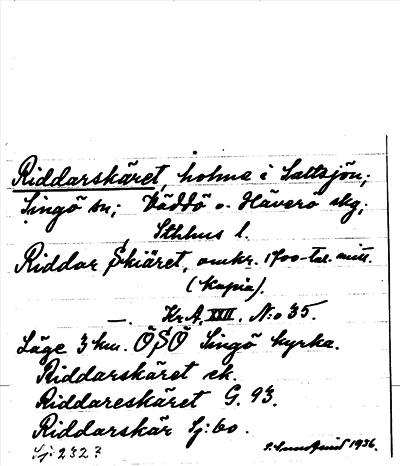 Riddarskäret, holme i Saltsjön;
Singö sn; Väddö o. Häverö skg;
Sthlms l.
Riddar Skiäret, omkr. 1700-tal. mitt.
(Kopia).
—. Kr.A. XXII. N:o 35.
Läge 3 km. ÖSÖ Singö kyrka.
Riddarskäret ek.
Riddareskäret G. 93.
Riddarskär Sj: 60.
Sj: 2323
1936.